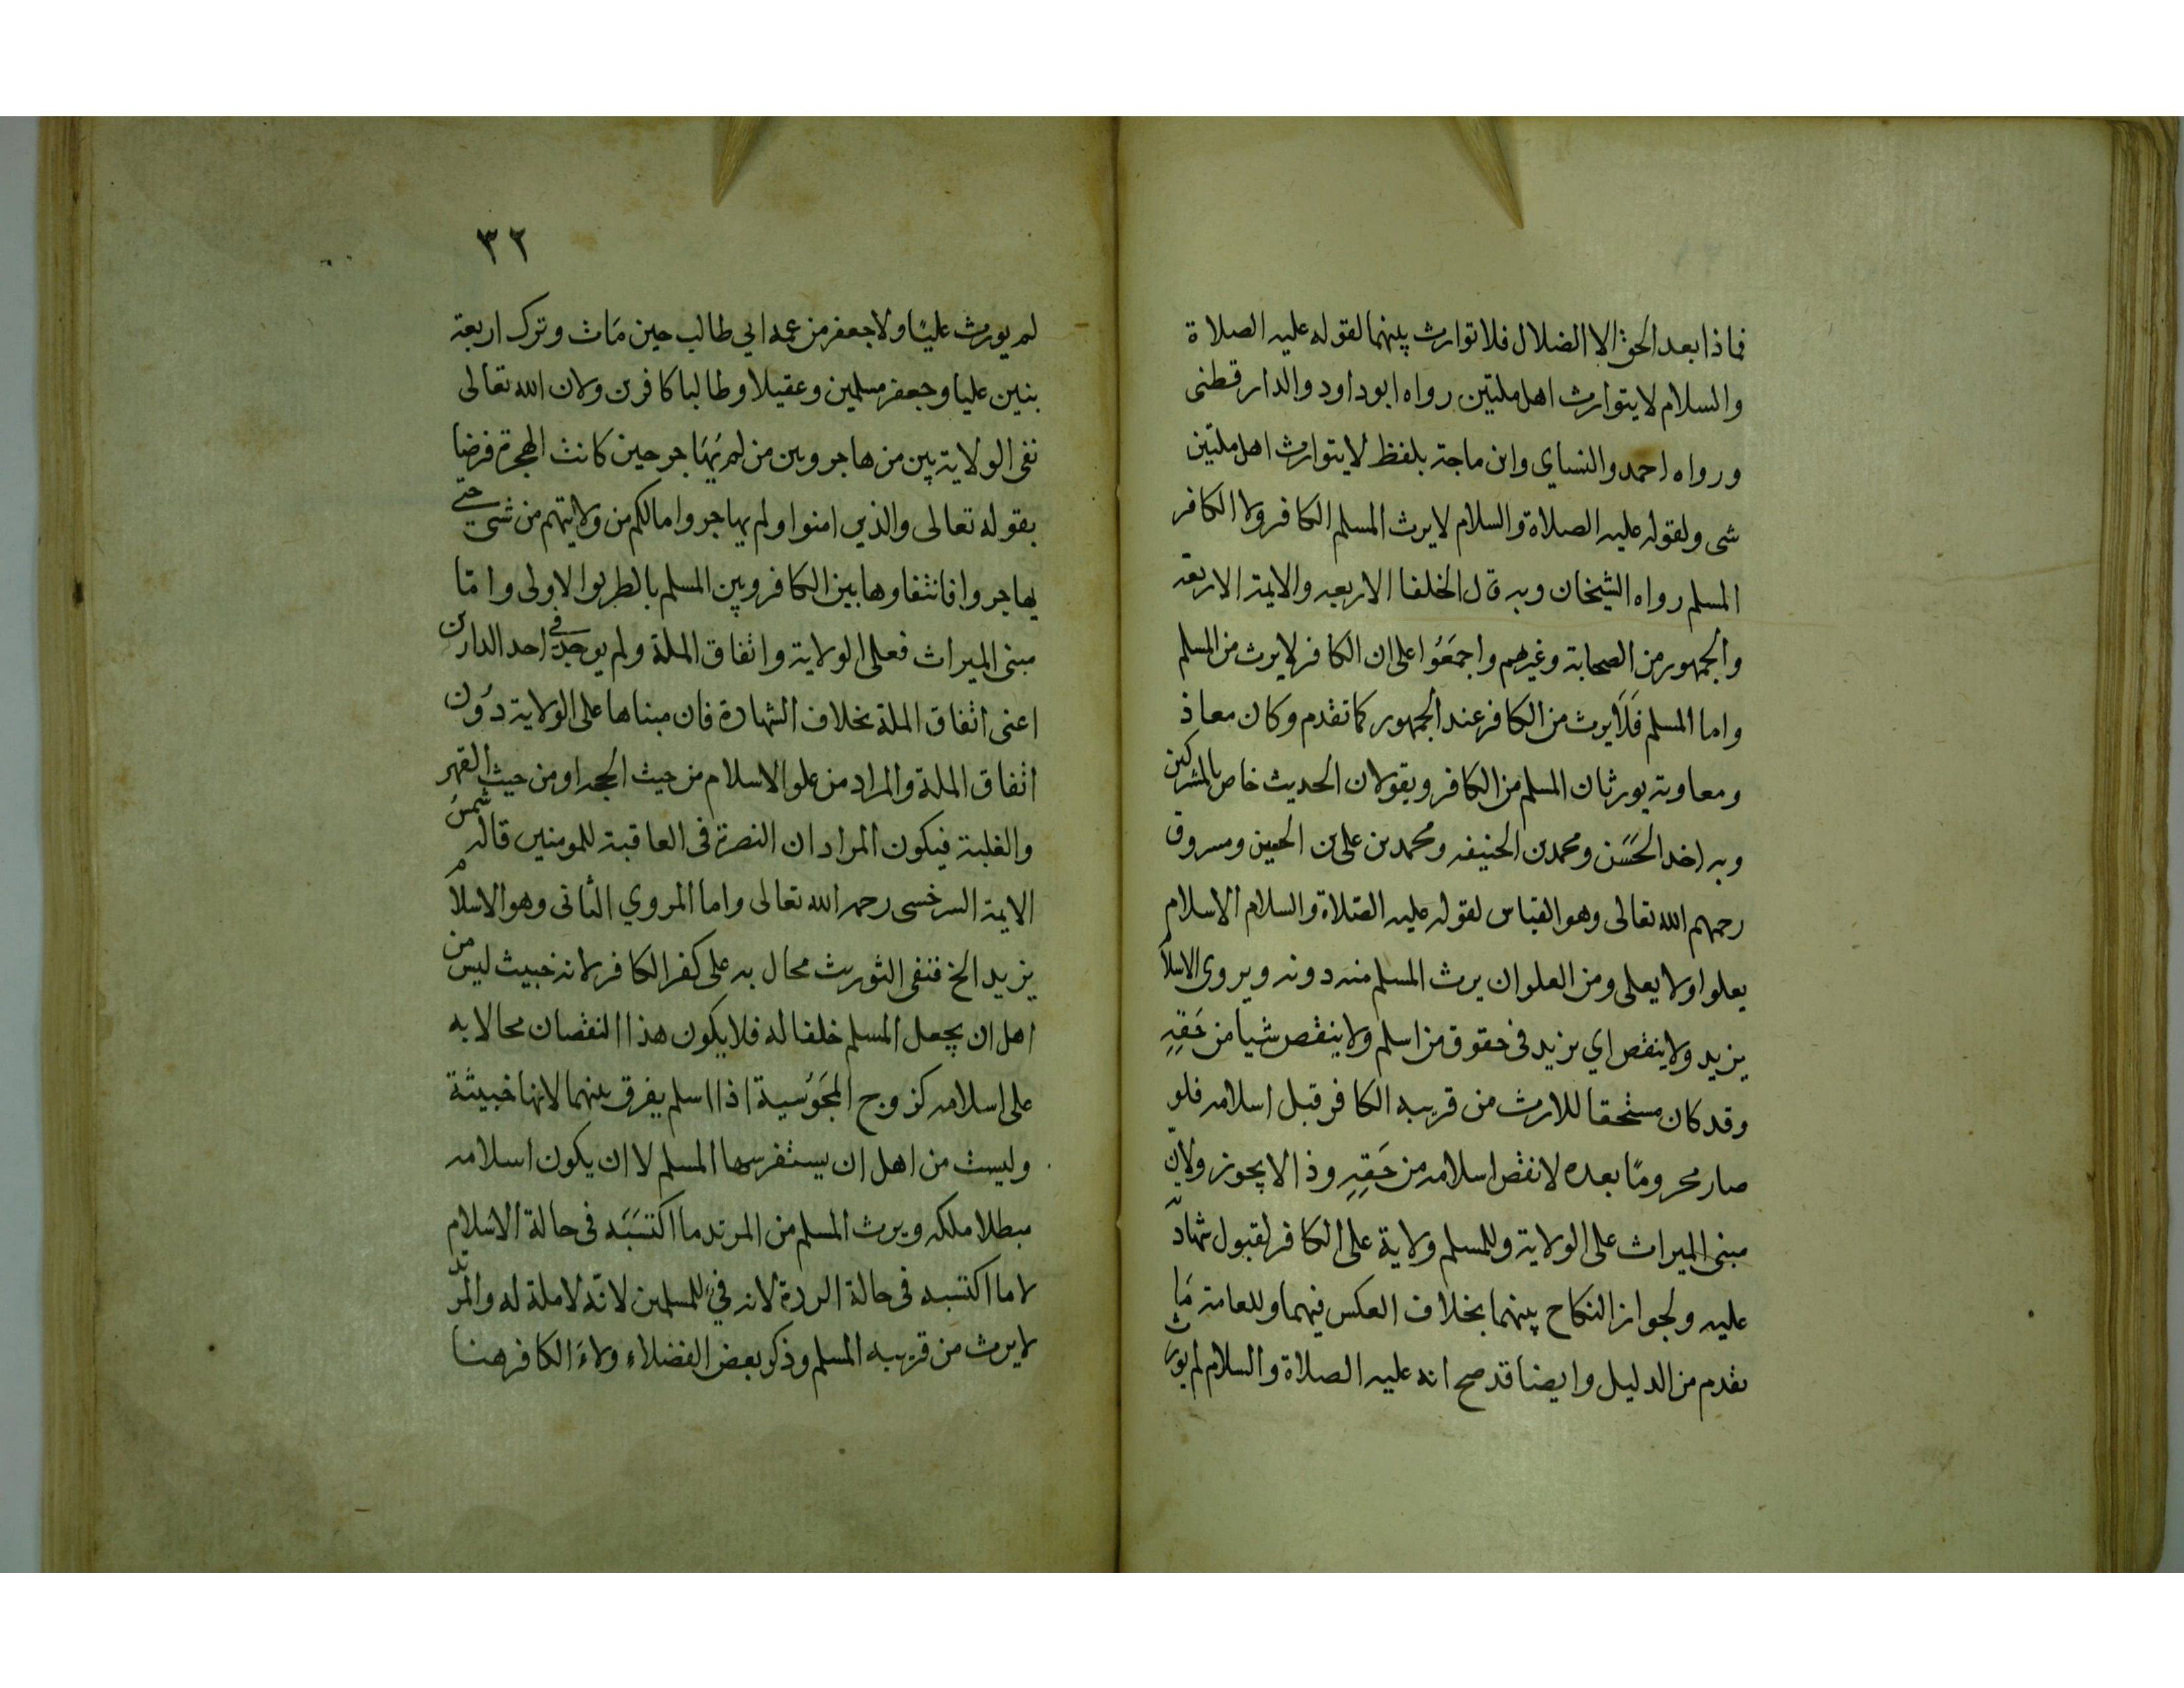 فماذا بعد الحق الا الضلال فلا توارث بينهما لقوله عليه الصلاة
والسلام لا يتوارث اهل ملتين رواه ابو داود والدارقطنى
ورواه احمد والنساي وابن ماجة بلفظ لا يتوارث اهل ملتين
شى ولقوله عليه الصلاة والسلام لا يرث المسلم الكافر ولا الكافر
المسلم رواه الشيخان وبه قال الخلفا الاربعه والايمة الاربعه
والجمهور من الصحابة وغيرهم واجمَعُوا على ان الكافر لا يرث من المسلم
واما المسلم فَلَا يرث من الكافر عند الجمهور كما تقدم وكان معاذ
ومعاوية يورثان المسلم من الكافر ويقولان الحديث خاص بالمشركين
وبه اخد الحَسَن ومحمد بن الحنيفه ومحمد بن على بن الحسين ومسروق
رحمهم الله تعالى وهو القياس لقوله عليه الصّلاة والسلام الاسلام
يعلوا ولا يعلى ومن العلو ان يرث المسلم منه دونه ويروى الاسلام
يزيد ولا ينقص اي يزيد فى حقوق من اسلم ولا ينقص شيا من حَقِهِ
وقد كان مستحقا للارث من قريبه الكافر قبل اسلامه فلو
صار محرومًا بعده لانقص اسلامه من حَقِهِ وذا لا يجوز ولان
مبنى الميراث على الولاية وللمسلم ولاية على الكافر لقبول شهادته
عليه ولجواز النكاح بينهما بخلاف العكس فيهما وللعامة مَا
تقدم من الدليل وايضا قد صح انه عليه الصلاة والسلام لم يورث
٣٢
لم يورث عليًا ولا جعفر من عمه ابي طالب حين مَات وترك اربعة
بنين عليا وجعفر مسلمين وعقيلا وطالبا كافرين ولان الله تعالى
نفى الولاية بين من هاجر وبين من لم يُهَاجر حين كانت الهجرة فرضا
بقوله تعالى والذين امنوا ولم يهاجروا مالكم من ولايتهم من شى حتى
يهاجروا فانتفاوها بين الكافر وبين المسلم بالطريق الاولى وامّا
مبنى الميراث فعلى الولاية واتفاق الملة ولم يوجد في احد الدارين
اعنى اتفاق الملة بخلاف الشهادة فان مبناها على الولاية دُون
اتفاق الملة والمراد من علو الاسلام من حيث الحجه او من حيث القهر
والغلبة فيكون المراد ان النصرة فى العاقبة للمومنين قاله شمسُ
الايمة السرخسى رحمه الله تعالى واما المروي الثانى وهو الاسلام
يزيد الخ فنفى التوريث محال به على كفر الكافر لانه خبيث ليس من
اهل ان يجعل المسلم خلفا له فلا يكون هذا النقصان محالا به
على اسلامه كزوج المجَوُسية اذا اسلم يفرق بينهما لانها خبيثة
وليست من اهل ان يستفرسها المسلم لا ان يكون اسلامه
مبطلا ملكه ويرث المسلم من المرتد ما اكتسَبَه فى حالة الاسلام
لا ما اكتسبه فى حالة الردة لانه فيٌ للمسلمين لانّه لا ملة له والمرتد
لا يرث من قريبه المسلم وذكر بعض الفضلاء ولاءَ الكافر هنا